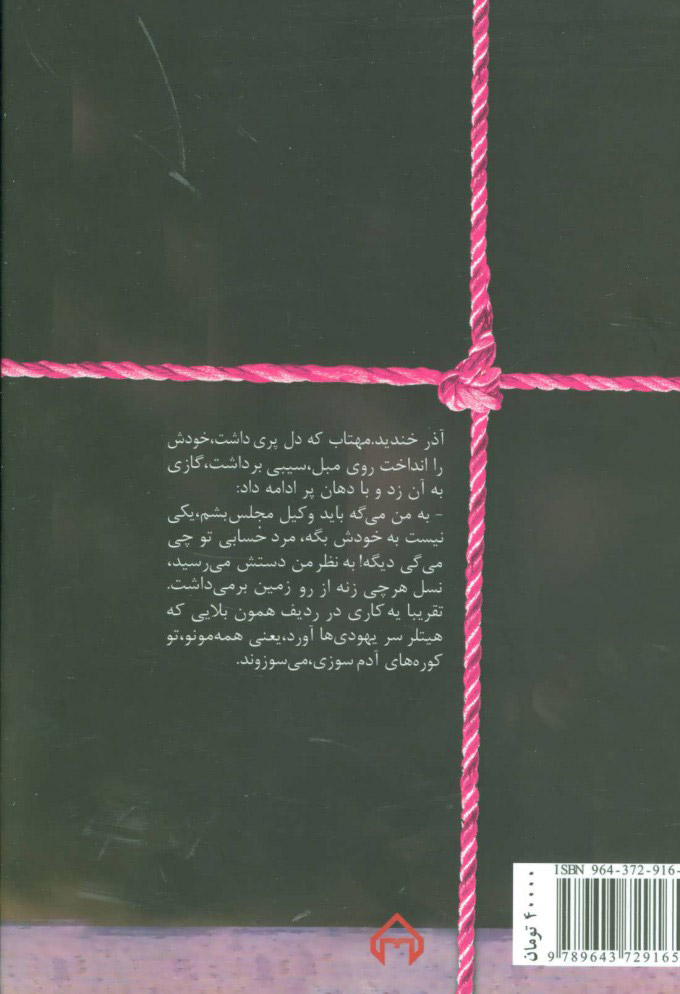 آذر خندید.مهتاب که دل پری داشت،خودش
را انداخت روی مبل،سیبی برداشت،گازی
به آن زد و با دهان پر ادامه داد:
- به من می‌گه باید وکیل مجلس‌بشم،یکی
نیست به خودش بگه، مرد حسابی تو چی
می‌گی دیگه! به نظر من دستش می‌رسید،
نسل هرچی زنه از رو زمین برمی‌داشت.
تقریبا یه کاری در ردیف همون بلایی که
هیتلر سر یهودی‌ها آورد،یعنی همه‌مونو،تو
کوره‌های آدم سوزی،می‌سوزوند.
ISBN 964-372-916-
۴۰۰۰۰ تومان
9 789643 729165